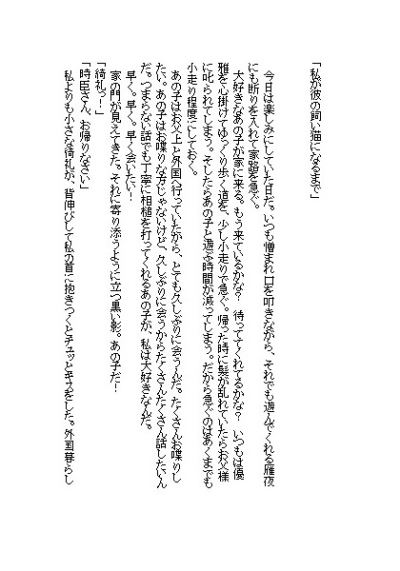 「私が彼の飼い猫になるまで」
今日は楽しみにしていた日だ。いつも憎まれ口を叩きながら、それでも遊んでくれる雁夜
にも断りを入れて家路を急ぐ。
大好きなあの子が家に来る。もう来ているかな？　待っててくれてるかな？　いつもは優
雅を心掛けてゆっくり歩く道を、少し小走りで急ぐ。帰った時に髪が乱れていたらお父様
に叱られてしまう。そしたらあの子と遊ぶ時間が減ってしまう。だから急ぐのはあくまでも
小走り程度にしておく。
あの子はお父上と外国へ行っていたから、とても久しぶりに会うんだ。たくさんお喋りし
たい。あの子はお喋りな方じゃないけど、久しぶりに会うからたくさんたくさん話したいん
だ。つまらない話でも丁寧に相槌を打ってくれるあの子が、私は大好きなんだ。
早く。早く。早く会いたい！
家の門が見えてきた。それに寄り添うように立つ黒い影。あの子だ！
「綺礼っ！」
「時臣さん、お帰りなさい」
私よりも小さな綺礼が、背伸びして私の首に抱きつくとチュッとキスをした。外国暮らし